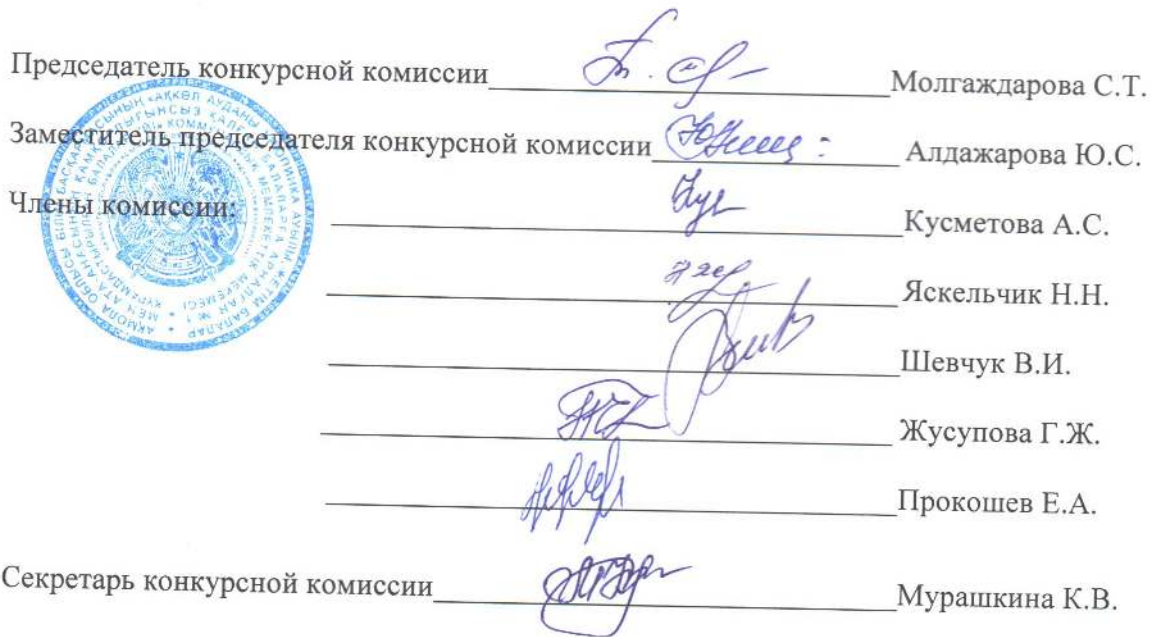 Председатель конкурсной комиссии Молгаждарова С.Т.
Заместитель председателя конкурсной комиссии Алдажарова Ю.С.
Члены комиссии: Кусметова А.С.
Яскельчик Н.Н.
Шевчук В.И.
Жусупова Г.Ж.
Прокошев Е.А.
Секретарь конкурсной комиссии Мурашкина К.В.